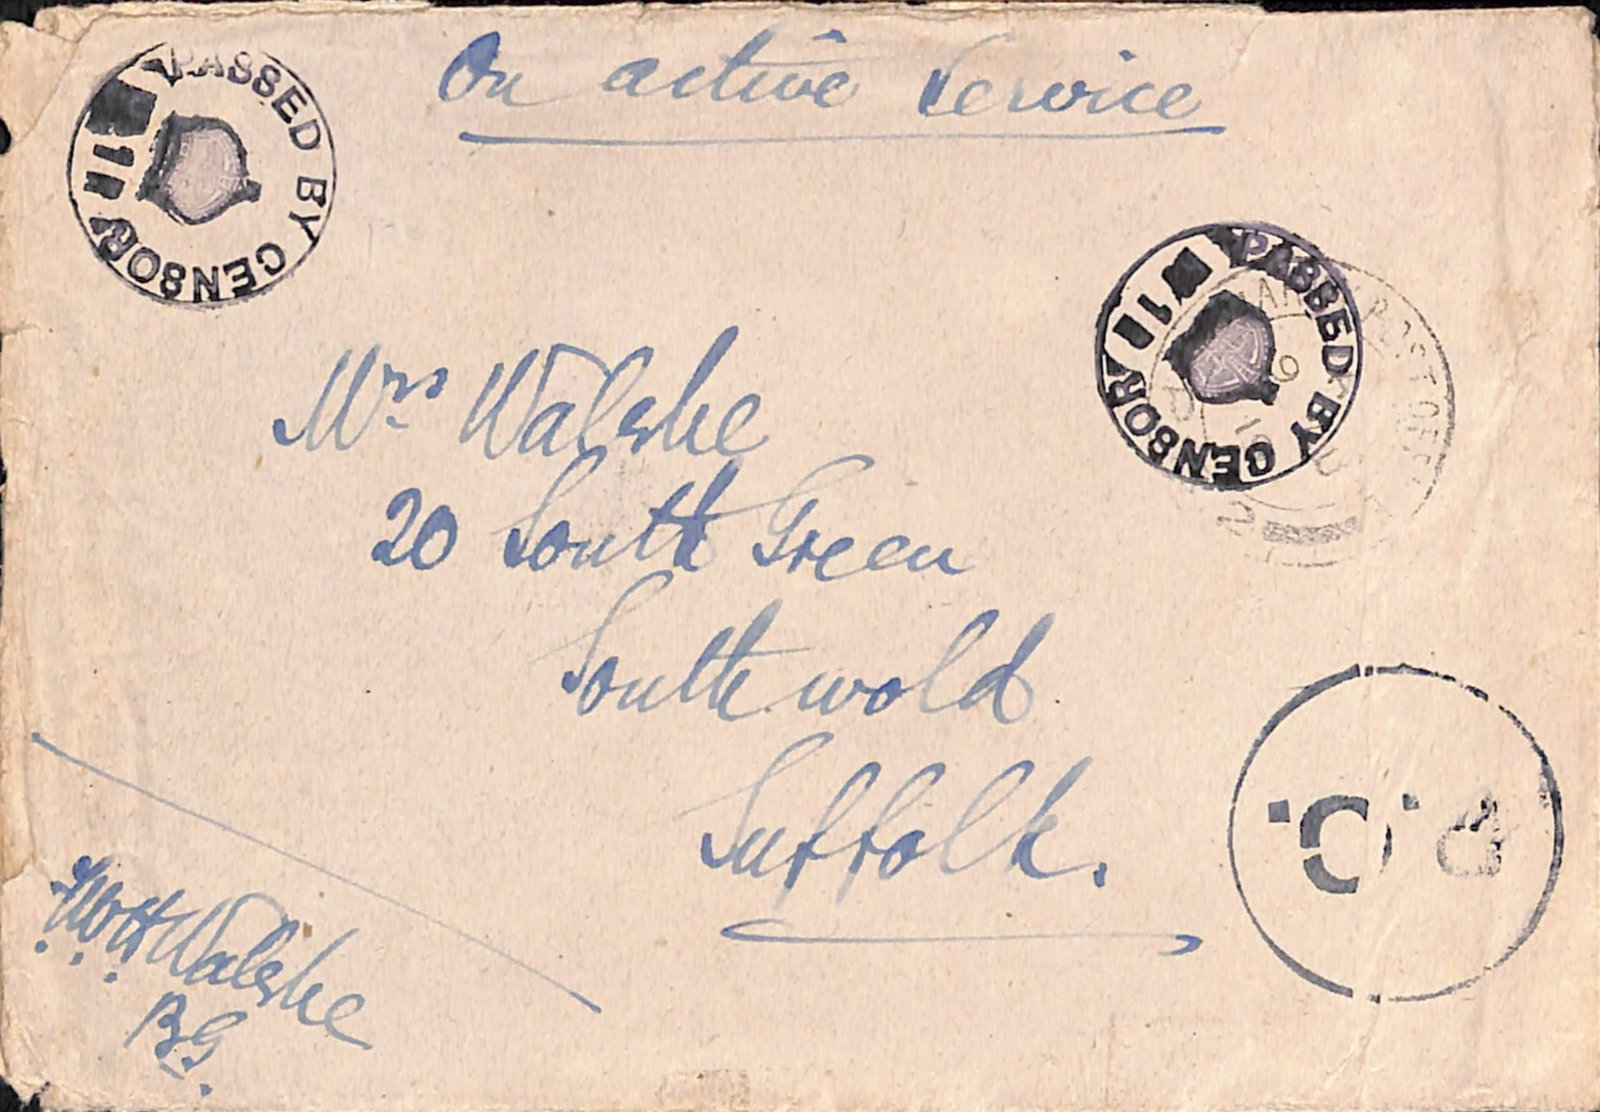 On active Service
PASSED BY CENSOR
PASSED BY CENSOR
Mrs Walshe
20 South Green
Southwold
Suffolk.
Walshe
BG.
P.O.